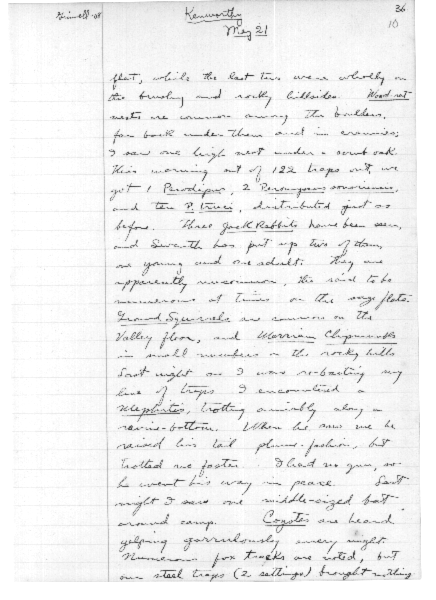 Grinnell-'08
Kenworthy
May 21
36
10
flat, while the last two were wholly on
the brushy and rocky hillsides. Wood rat
nests are common among the boulders,
far back under them and in crannies;
I saw one high nest under a scrub oak.
This morning out of 122 traps out, we
got 1 Perodipus, 2 Peromyscus sonoriensis,
and ten P. truei, distributed just as
before. Three Jack Rabbits have been seen,
and Swarth has put up two of them,
one young and one adult. They are
apparently uncommon, tho said to be
numerous at times on the sage flats.
Ground Squirrels are common on the
Valley floor, and Merriam Chipmunks
in small numbers on the rocky hills
Last night as I was re-baiting my
line of traps I encountered a
Mephitis, trotting amiably along a
ravine-bottom. When he saw me he
raised his tail plume-fashion, but
trotted no faster. I had no gun, so
he went his way in peace. Last
night I saw one middle-sized bat
around camp. Coyotes are heard
yelping garrulously every night
Numerous fox tracks are noted, but
our steel traps (2 settings) brought nothing